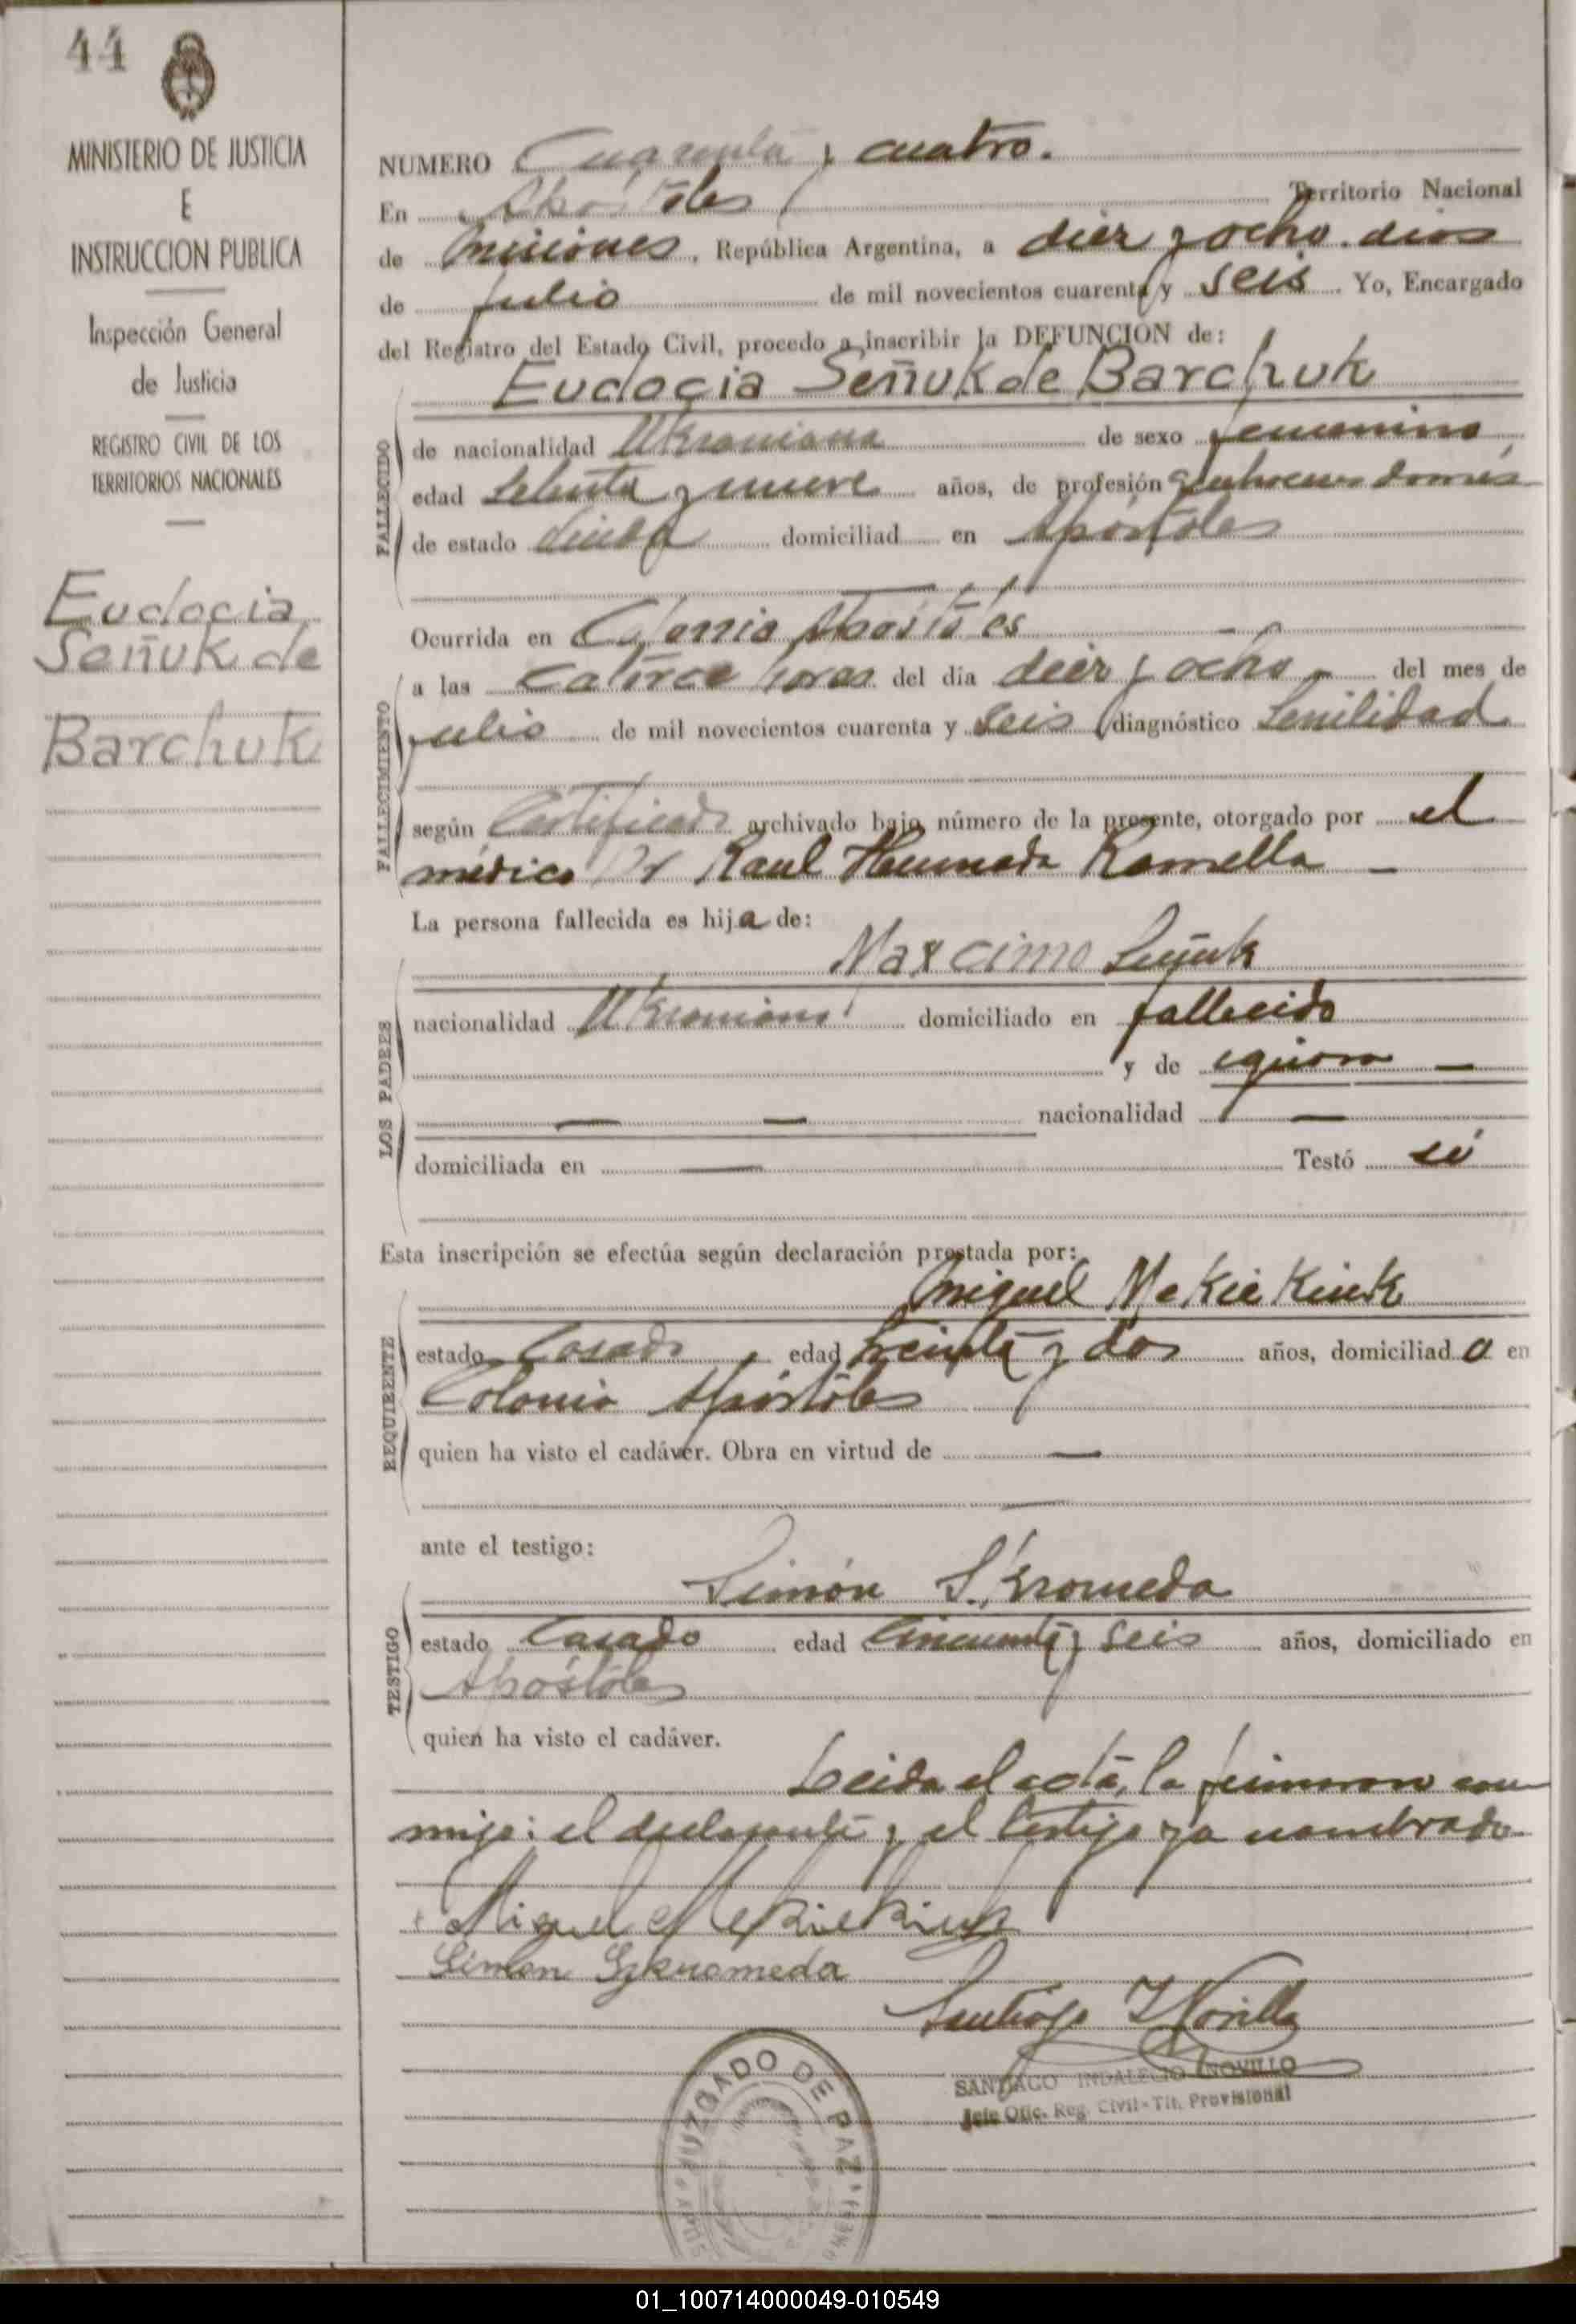 44
MINISTERIO DE JUSTICIA
E
INSTRUCCION PUBLICA
Inspección General
de Justicia
REGISTRO CIVIL DE LOS
TERRITORIOS NACIONALES
Eudocia
Señuk de
Barchuk
NUMERO Cuarenta y cuatro.
En Apóstoles Territorio Nacional
de Misiones, República Argentina, a diez y ocho dias
de Julio de mil novecientos cuarenta y seis. Yo, Encargado
del Registro del Estado Civil, procedo a inscribir la DEFUNCION de:
Eudocia Señuk de Barchuk
FALLECIDO
de nacionalidad Ukraniana de sexo femenino
edad setenta y nueve años, de profesión domés
de estado viuda domiciliad en Apóstoles
FALLECIMIENTO
Ocurrida en Colonia Apóstoles
a las catorce horas del día diez y ocho del mes de
julio de mil novecientos cuarenta y seis diagnóstico Senilidad
según Certificado archivado bajo número de la presente, otorgado por el
médico Dr Raul Ramella —
La persona fallecida es hija de:
LOS PADRES
Maxcimo Señuk
nacionalidad Ukraniano domiciliado en fallecido
y de —
— — nacionalidad —
domiciliada en — Testó si
Esta inscripción se efectúa según declaración prestada por:
REQUIRENTE
Miguel Mekiekiuk
estado Casado edad treinta y dos años, domiciliado en
Colonia Apóstoles
quien ha visto el cadáver. Obra en virtud de —
—
ante el testigo:
TESTIGO
Simón Skromeda
estado Casado edad Cincuenta y seis años, domiciliado en
Apóstoles
quien ha visto el cadáver.
Leida el acta, la firmaron con
migo: el declarante y el testigo ya nombrado
Miguel Mekiekiuk
Simon Szkromeda
Santiago I Novillo
SANTIAGO INDALECIO NOVILLO
Jefe Ofic. Reg. Civil - Tit. Provisional
JUZGADO DE PAZ
01_100714000049-010549